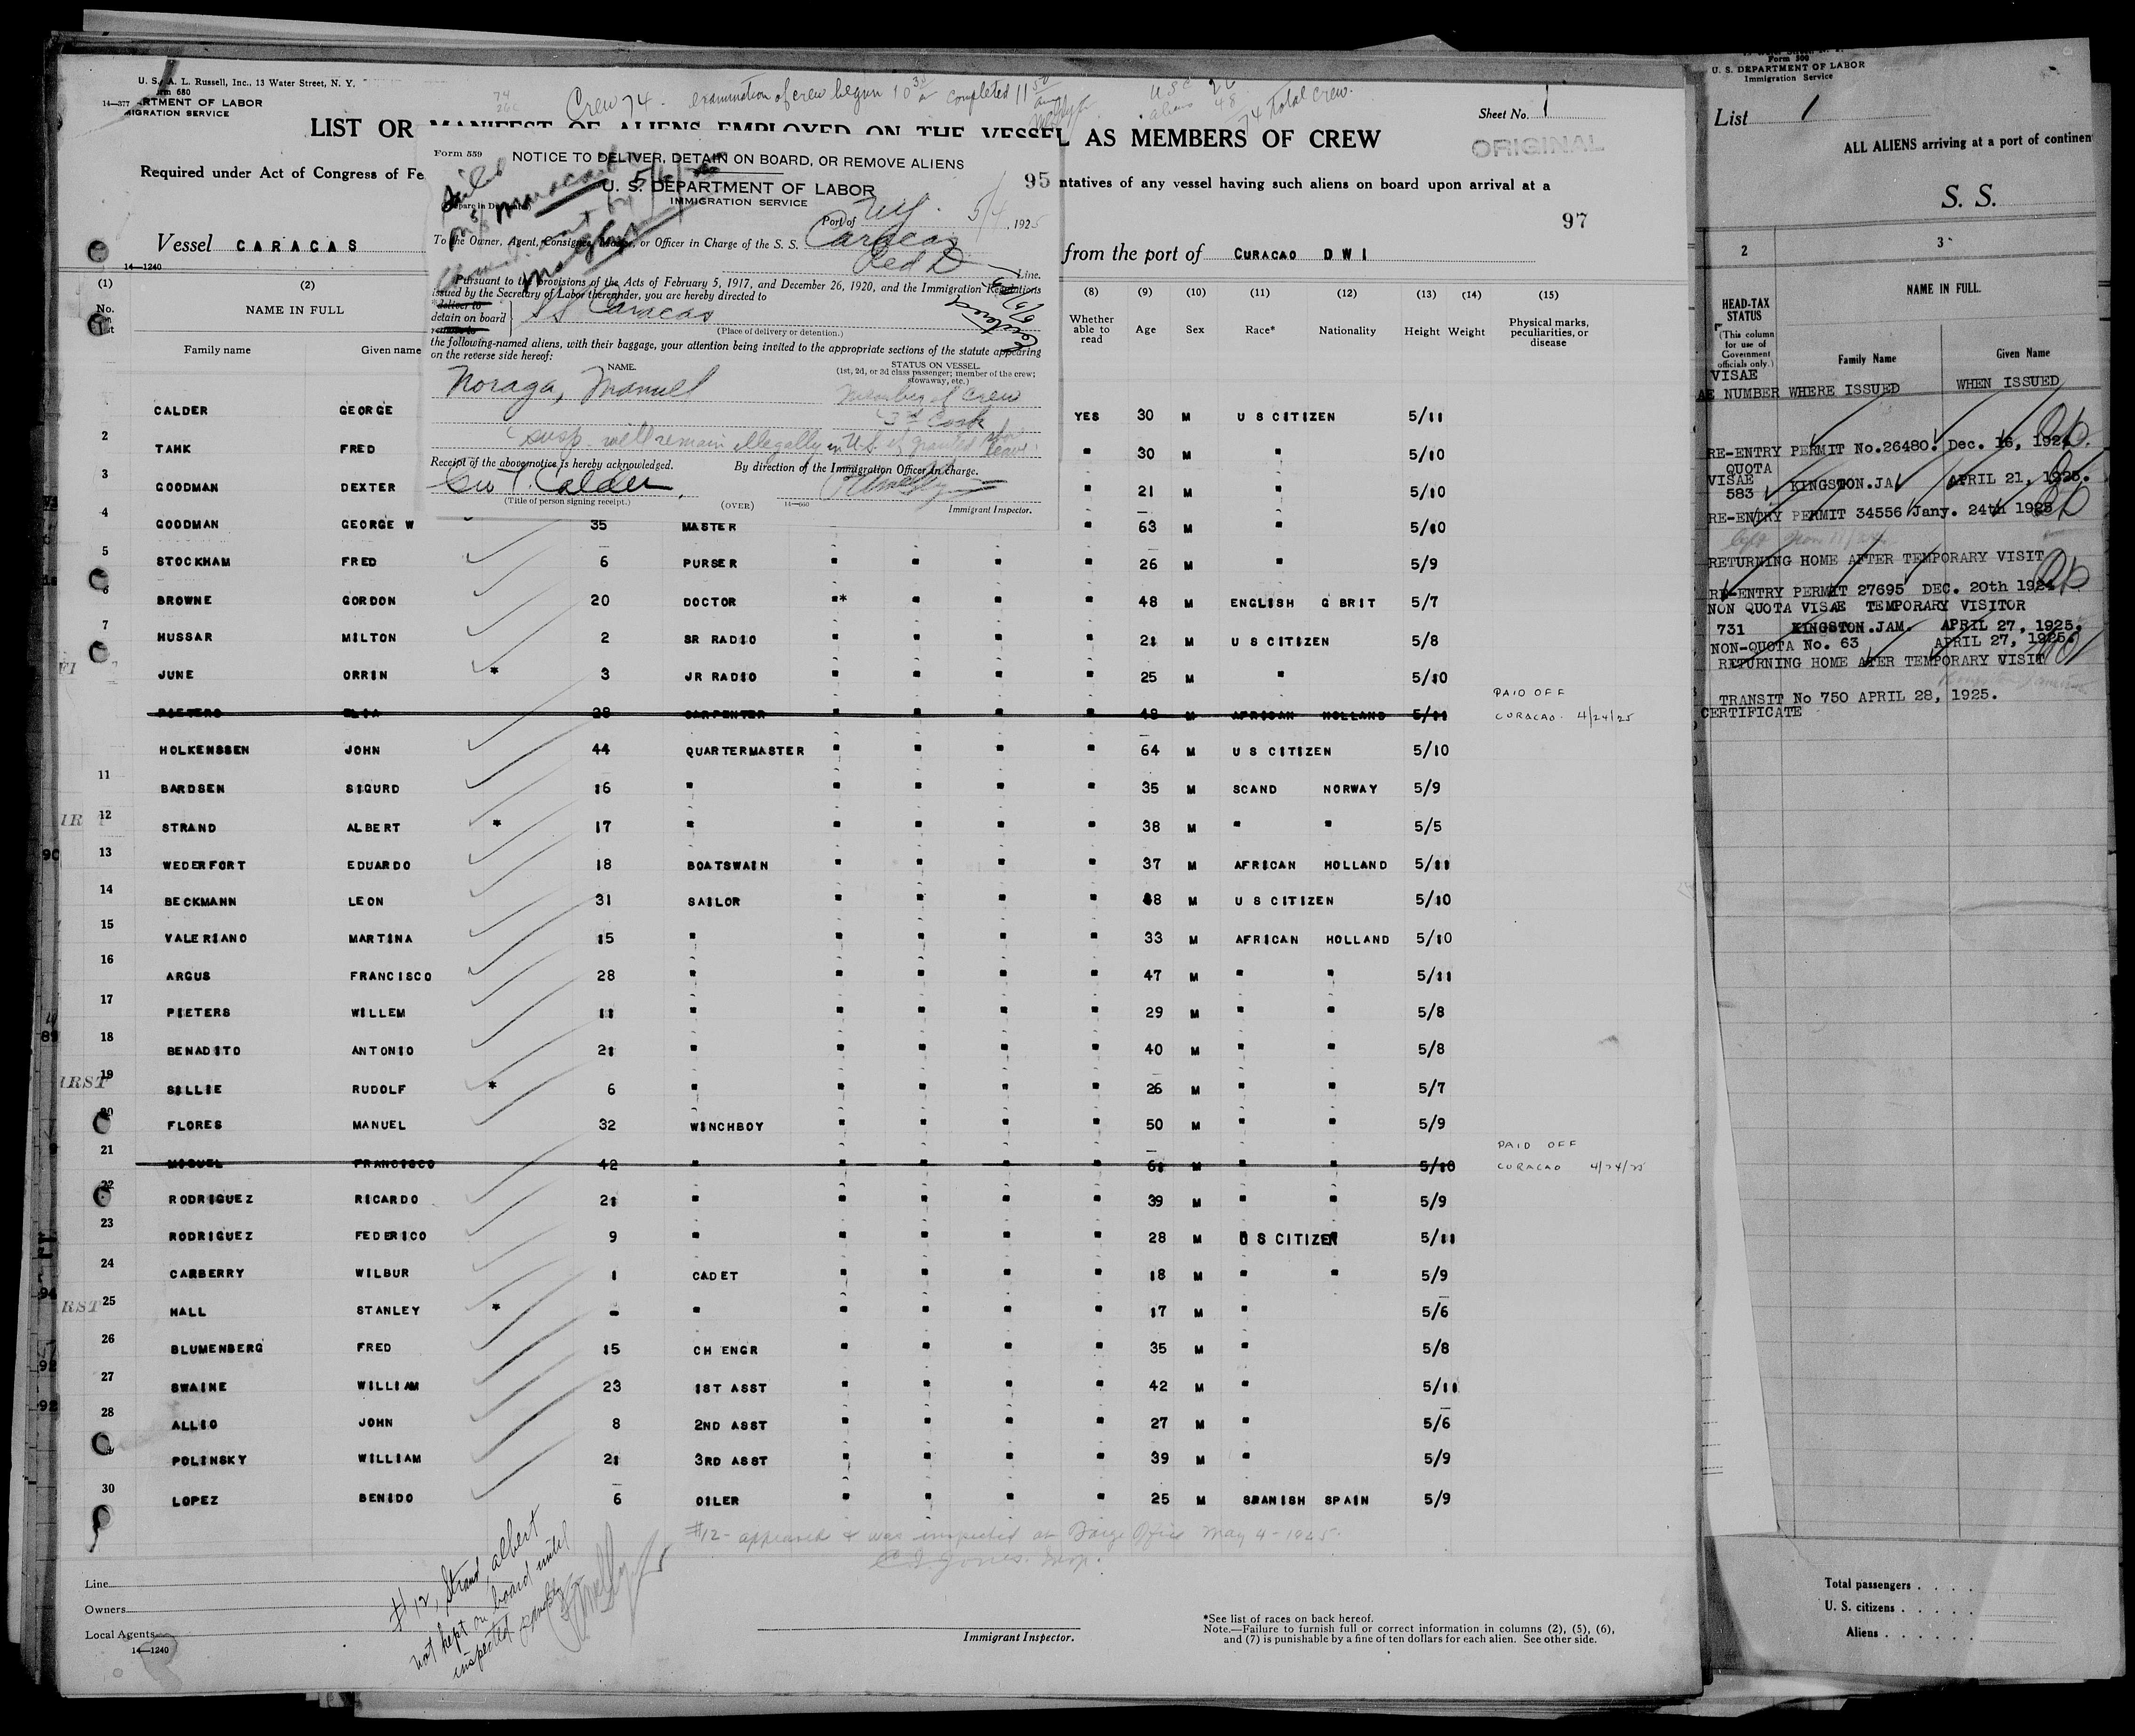 U. S. A. L. Russell, Inc., 13 Water Street, N. Y.
680
14—377
ARTMENT OF LABOR
MIGRATION SERVICE
Crew 74. examination of crew begun 10 30 a completed 11 50 am
USC 26
aliens 48
74 total crew.
Sheet No. 1
LIST OR MANIFEST OF ALIENS EMPLOYED ON THE VESSEL AS MEMBERS OF CREW
ORIGINAL
Required under Act of Congress of Fe
ntatives of any vessel having such aliens on board upon arrival at a
97
Vessel CARACAS
from the port of CURACAO D W I
14—1240
Form 559
NOTICE TO DELIVER, DETAIN ON BOARD, OR REMOVE ALIENS
U. S. DEPARTMENT OF LABOR
IMMIGRATION SERVICE
95
Port of N.Y. 5/4, 1925
To the Owner, Agent, Consignee, Master, or Officer in Charge of the S. S. Caracas
Red D Line.
Pursuant to the provisions of the Acts of February 5, 1917, and December 26, 1920, and the Immigration Regulations
issued by the Secretary of Labor thereunder, you are hereby directed to
deliver to
detain on board
remove to
SS Caracas
(Place of delivery or detention.)
the following-named aliens, with their baggage, your attention being invited to the appropriate sections of the statute appearing
on the reverse side hereof:
NAME.
STATUS ON VESSEL.
(1st, 2d, or 3d class passenger; member of the crew;
stowaway, etc.)
Noraga, Manuel
Member of Crew
3rd Cook
susp. will remain illegally in U.S. if granted shore leave.
Receipt of the above notice is hereby acknowledged.
By direction of the Immigration Officer in Charge.
Geo T. Calder,
(Title of person signing receipt.)
(OVER)
14—660
Immigrant Inspector.
(1) (2) (8) (9) (10) (11) (12) (13) (14) (15)
No. NAME IN FULL Whether able to read Age Sex Race* Nationality Height Weight Physical marks, peculiarities, or disease
Family name Given name
CALDER GEORGE YES 30 M U S CITIZEN 5/11
2 TAHK FRED " 30 M " 5/10
3 GOODMAN DEXTER " 21 M " 5/10
4 GOODMAN GEORGE W 35 MASTER " 63 M " 5/10
5 STOCKHAM FRED 6 PURSER " " " " 26 M " 5/9
6 BROWNE GORDON 20 DOCTOR "* " " " 48 M ENGLISH G BRIT 5/7
7 HUSSAR MILTON 2 SR RADIO " " " " 21 M U S CITIZEN 5/8
JUNE ORRIN * 3 JR RADIO " " " " 25 M " 5/10
PIETERS ELIA 28 CARPENTER " " " " 48 M AFRICAN HOLLAND 5/11 PAID OFF CURACAO. 4/24/25
HOLKENSSEN JOHN 44 QUARTERMASTER " " " " 64 M U S CITIZEN 5/10
11 BARDSEN SIGURD 16 " " " " " 35 M SCAND NORWAY 5/9
12 STRAND ALBERT * 17 " " " " " 38 M " " 5/5
13 WEDERFORT EDUARDO 18 BOATSWAIN " " " " 37 M AFRICAN HOLLAND 5/11
14 BECKMANN LEON 31 SAILOR " " " " 48 M U S CITIZEN 5/10
15 VALERIANO MARTINA 15 " " " " " 33 M AFRICAN HOLLAND 5/10
16 ARGUS FRANCISCO 28 " " " " " 47 M " " 5/11
17 PIETERS WILLEM 11 " " " " " 29 M " " 5/8
18 BENADITO ANTONIO 21 " " " " " 40 M " " 5/8
19 SILLIE RUDOLF * 6 " " " " " 26 M " " 5/7
20 FLORES MANUEL 32 WINCHBOY " " " " 50 M " " 5/9
21 MIGUEL FRANCISCO 42 " " " " " 61 M " " 5/10 PAID OFF CURACAO 4/24/25
22 RODRIGUEZ RICARDO 21 " " " " " 39 M " " 5/9
23 RODRIGUEZ FEDERICO 9 " " " " " 28 M U S CITIZEN 5/11
24 CARBERRY WILBUR 1 CADET " " " " 18 M " " 5/9
25 HALL STANLEY * - " " " " " 17 M " 5/6
26 BLUMENBERG FRED 15 CH ENGR " " " " 35 M " 5/8
27 SWAINE WILLIAM 23 1ST ASST " " " " 42 M " 5/11
28 ALLIO JOHN 8 2ND ASST " " " " 27 M " 5/6
POLINSKY WILLIAM 21 3RD ASST " " " " 39 M " 5/9
30 LOPEZ BENIDO 6 OILER " " " " 25 M SPANISH SPAIN 5/9
#12 - appeared & was inspected at Barge Office May 4-1925.
C I Jones. Insp.
#12, Strand, albert
not kept on board until
inspected
Line
Owners
Local Agents
14—1240
Immigrant Inspector.
*See list of races on back hereof.
Note.—Failure to furnish full or correct information in columns (2), (5), (6),
and (7) is punishable by a fine of ten dollars for each alien. See other side.
Form 500
U. S. DEPARTMENT OF LABOR
Immigration Service
List 1
ALL ALIENS arriving at a port of continen
S. S.
2 3
HEAD-TAX STATUS
(This column for use of Government officials only.)
NAME IN FULL.
Family Name Given Name
VISAE
NUMBER WHERE ISSUED WHEN ISSUED
RE-ENTRY PERMIT No.26480. Dec. 16, 1924.
QUOTA
VISAE
583 KINGSTON.JA. APRIL 21, 1925.
RE-ENTRY PERMIT 34556 Jany. 24th 1925
RETURNING HOME AFTER TEMPORARY VISIT
RE-ENTRY PERMIT 27695 DEC. 20th 1924
NON QUOTA VISAE TEMPORARY VISITOR
731 KINGSTON.JAM. APRIL 27, 1925.
NON-QUOTA No. 63 APRIL 27, 1925.
RETURNING HOME AFTER TEMPORARY VISIT
TRANSIT No 750 APRIL 28, 1925.
CERTIFICATE
Total passengers . . . .
U. S. citizens . . . . .
Aliens . . . . . .